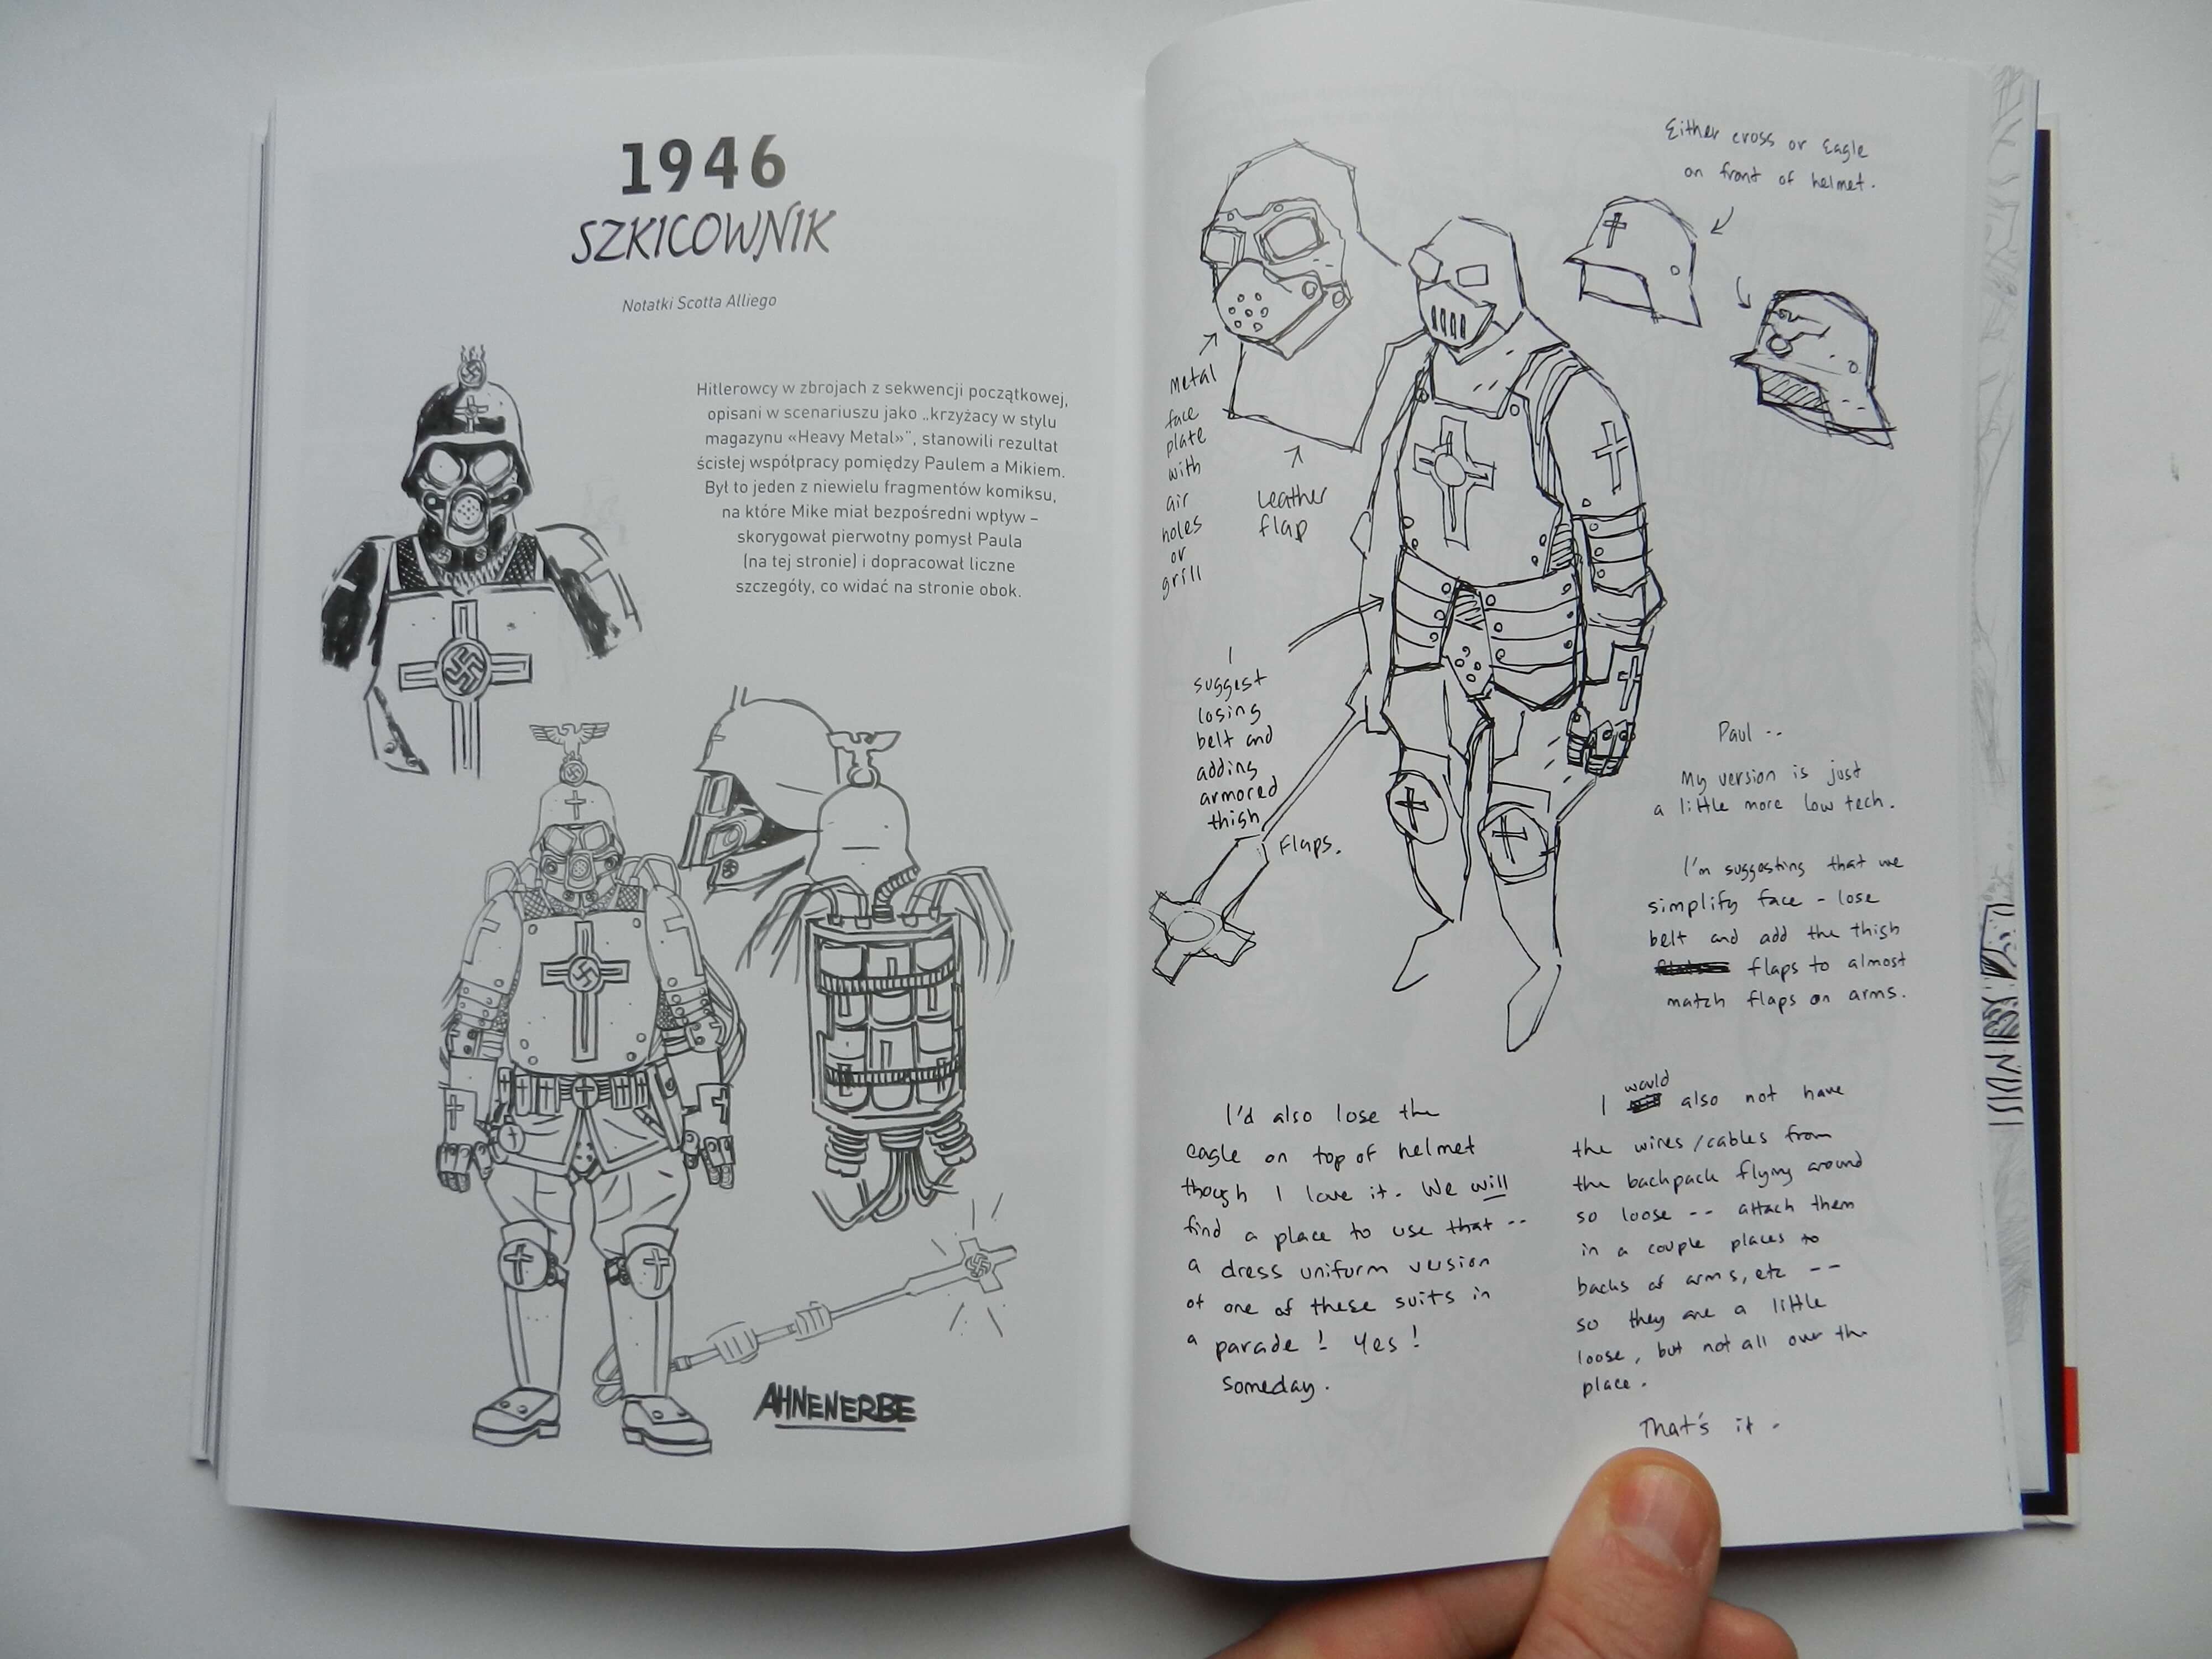 1946
SZKICOWNIK
Notatki Scotta Alliego
Hitlerowcy w zbrojach z sekwencji początkowej,
opisani w scenariuszu jako „krzyżacy w stylu
magazynu «Heavy Metal»”, stanowili rezultat
ścisłej współpracy pomiędzy Paulem a Mikiem.
Był to jeden z niewielu fragmentów komiksu,
na które Mike miał bezpośredni wpływ –
skorygował pierwotny pomysł Paula
(na tej stronie) i dopracował liczne
szczegóły, co widać na stronie obok.
AHNENERBE
Either cross or Eagle
on front of helmet.
Metal
face
plate
with
air
holes
or
grill
Leather
flap
I
suggest
losing
belt and
adding
armored
thigh
flaps.
Paul --
My version is just
a little more low tech.
I'm suggesting that we
simplify face - lose
belt and add the thigh
flaps to almost
match flaps on arms.
I'd also lose the
eagle on top of helmet
though I love it. We will
find a place to use that --
a dress uniform version
of one of these suits in
a parade! Yes!
Someday.
I would also not have
the wires/cables from
the backpack flying around
so loose -- attach them
in a couple places to
backs of arms, etc --
so they are a little
loose, but not all over the
place.
That's it -